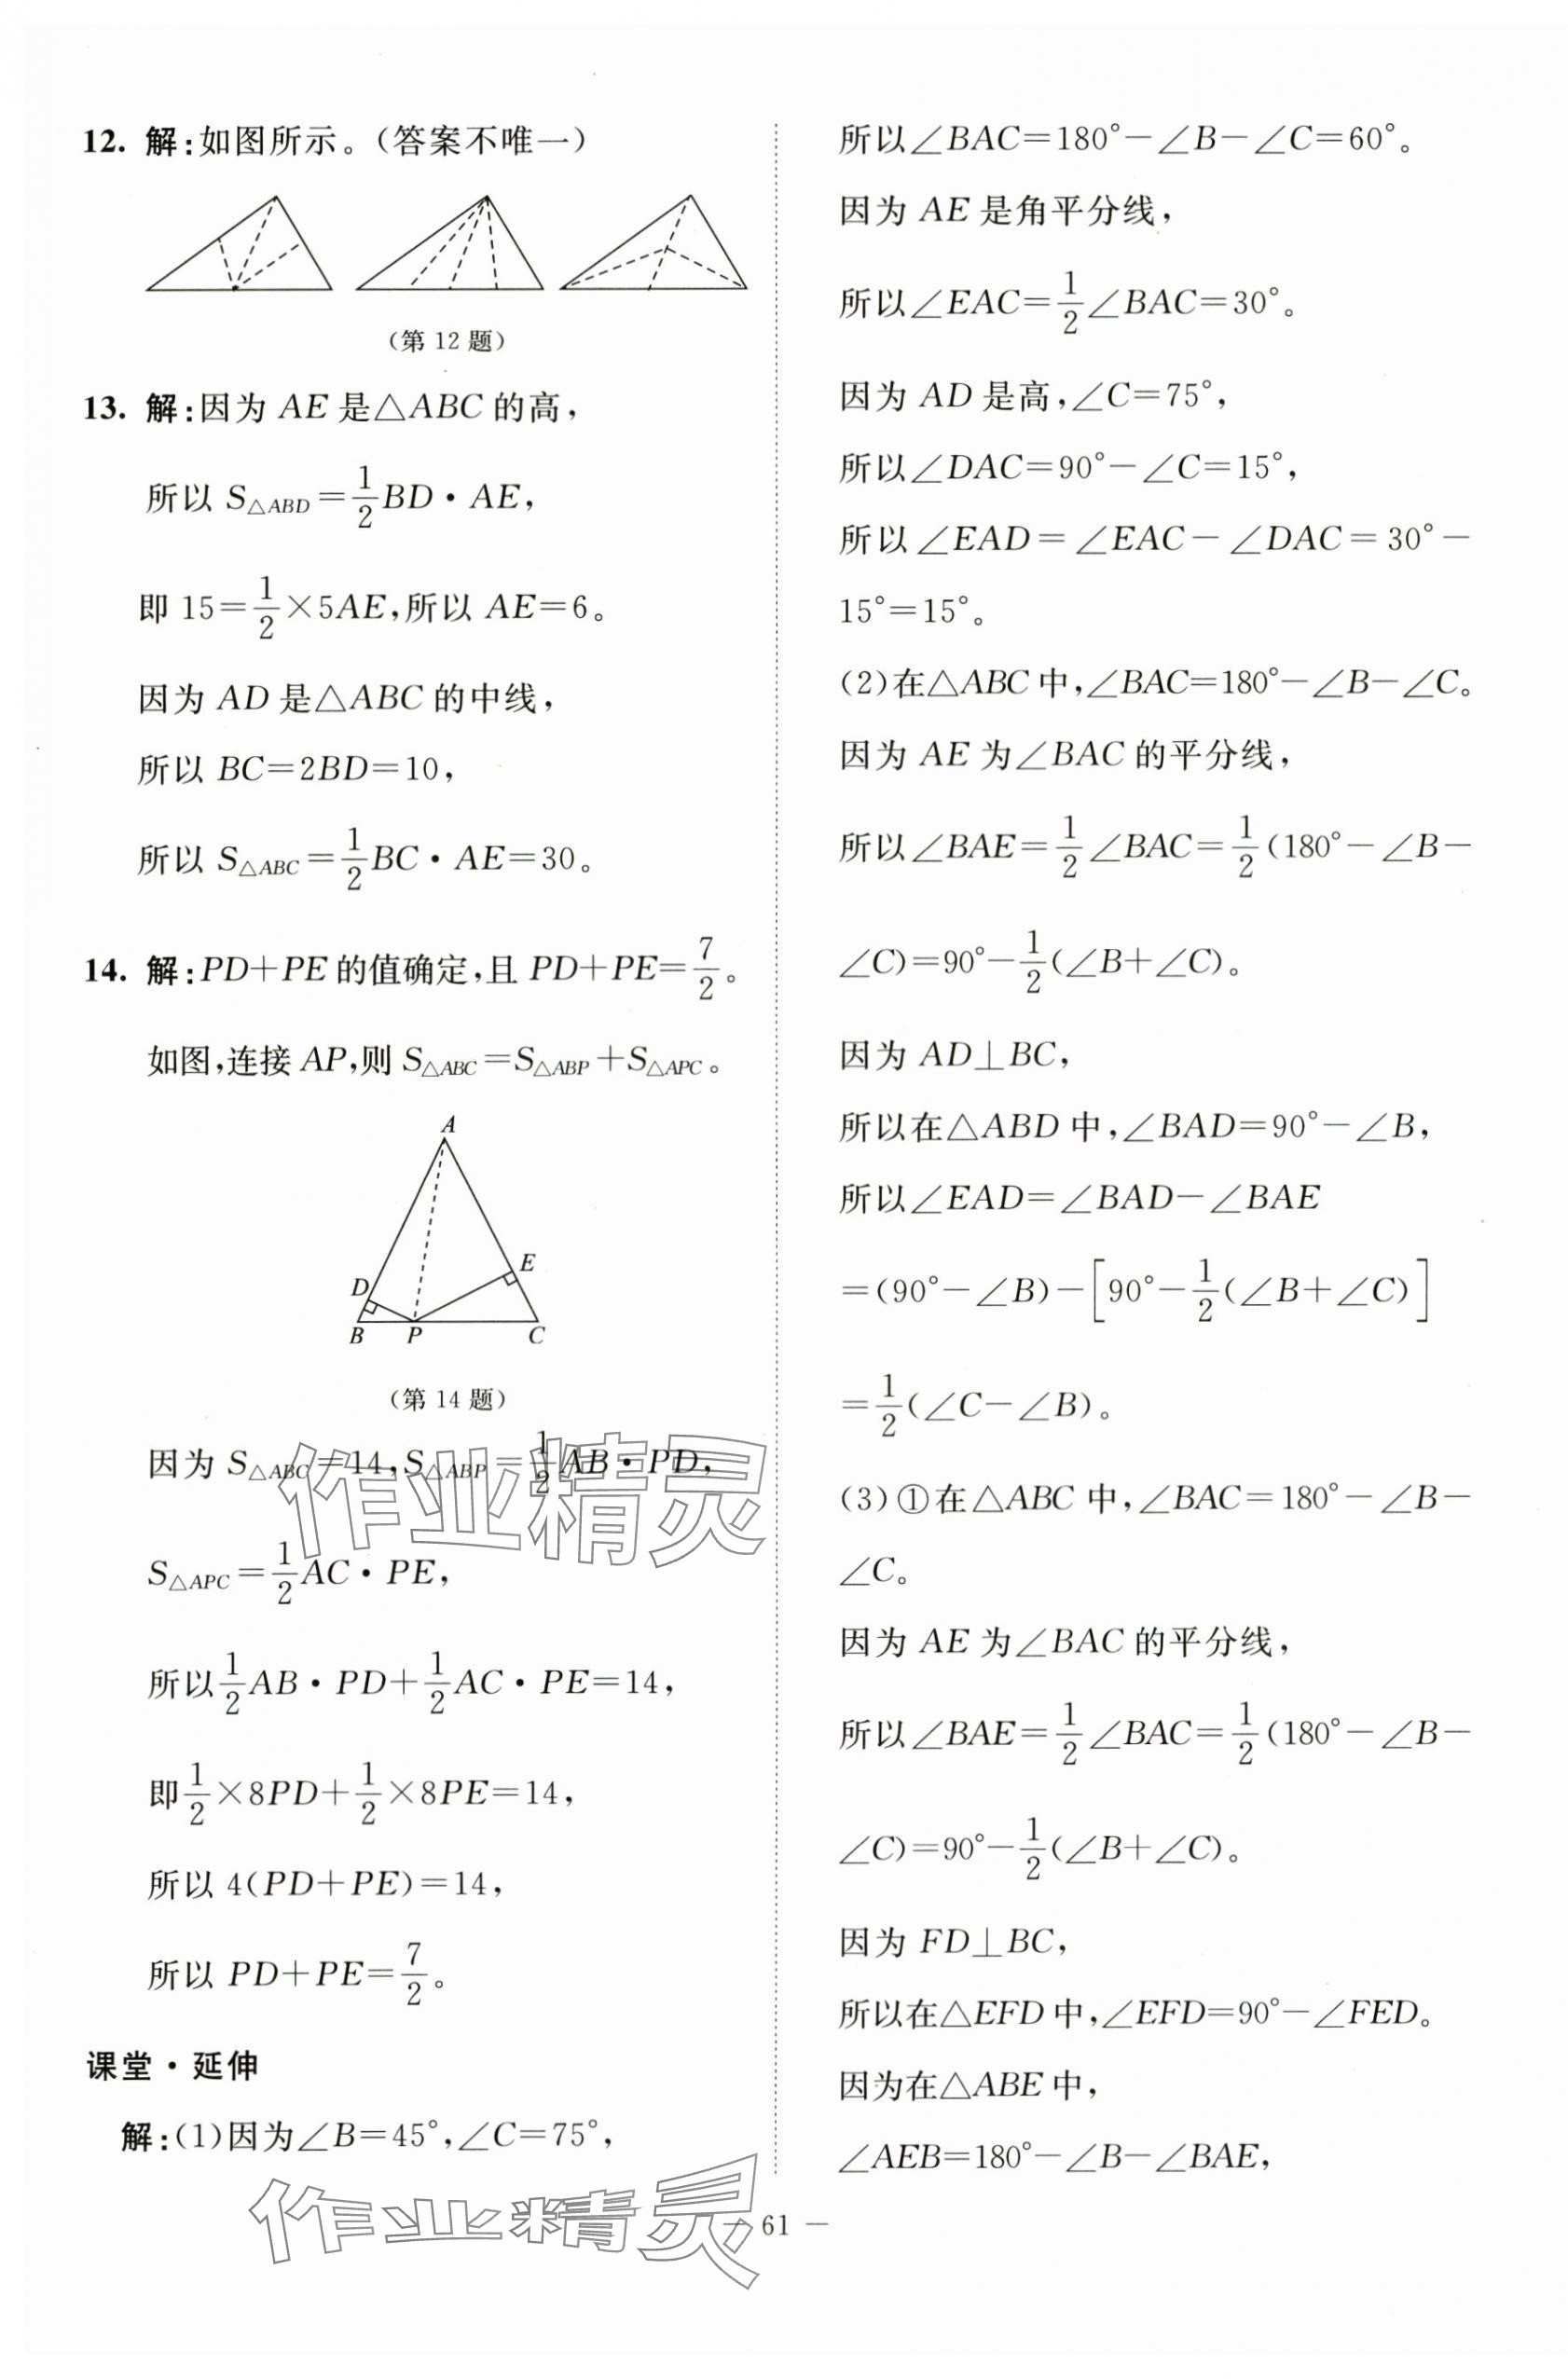 12. 解:如图所示。(答案不唯一)
(第 12 题)
13. 解:因为 AE 是△ABC 的高,
所以 S△ABD=1/2BD·AE,
即 15=1/2×5AE,所以 AE=6。
因为 AD 是△ABC 的中线,
所以 BC=2BD=10,
所以 S△ABC=1/2BC·AE=30。
14. 解:PD+PE 的值确定,且 PD+PE=7/2。
如图,连接 AP,则 S△ABC=S△ABP+S△APC。
A
E
D
B P C
(第 14 题)
因为 S△ABC=14,S△ABP=1/2AB·PD,
S△APC=1/2AC·PE,
所以1/2AB·PD+1/2AC·PE=14,
即1/2×8PD+1/2×8PE=14,
所以 4(PD+PE)=14,
所以 PD+PE=7/2。
课堂·延伸
解:(1)因为∠B=45°,∠C=75°,
所以∠BAC=180°-∠B-∠C=60°。
因为 AE 是角平分线,
所以∠EAC=1/2∠BAC=30°。
因为 AD 是高,∠C=75°,
所以∠DAC=90°-∠C=15°,
所以∠EAD=∠EAC-∠DAC=30°-
15°=15°。
(2)在△ABC 中,∠BAC=180°-∠B-∠C。
因为 AE 为∠BAC 的平分线,
所以∠BAE=1/2∠BAC=1/2(180°-∠B-
∠C)=90°-1/2(∠B+∠C)。
因为 AD⊥BC,
所以在△ABD 中,∠BAD=90°-∠B,
所以∠EAD=∠BAD-∠BAE
=(90°-∠B)-[90°-1/2(∠B+∠C)]
=1/2(∠C-∠B)。
(3)①在△ABC 中,∠BAC=180°-∠B-
∠C。
因为 AE 为∠BAC 的平分线,
所以∠BAE=1/2∠BAC=1/2(180°-∠B-
∠C)=90°-1/2(∠B+∠C)。
因为 FD⊥BC,
所以在△EFD 中,∠EFD=90°-∠FED。
因为在△ABE 中,
∠AEB=180°-∠B-∠BAE,
作业精灵
作业精灵
— 61 —